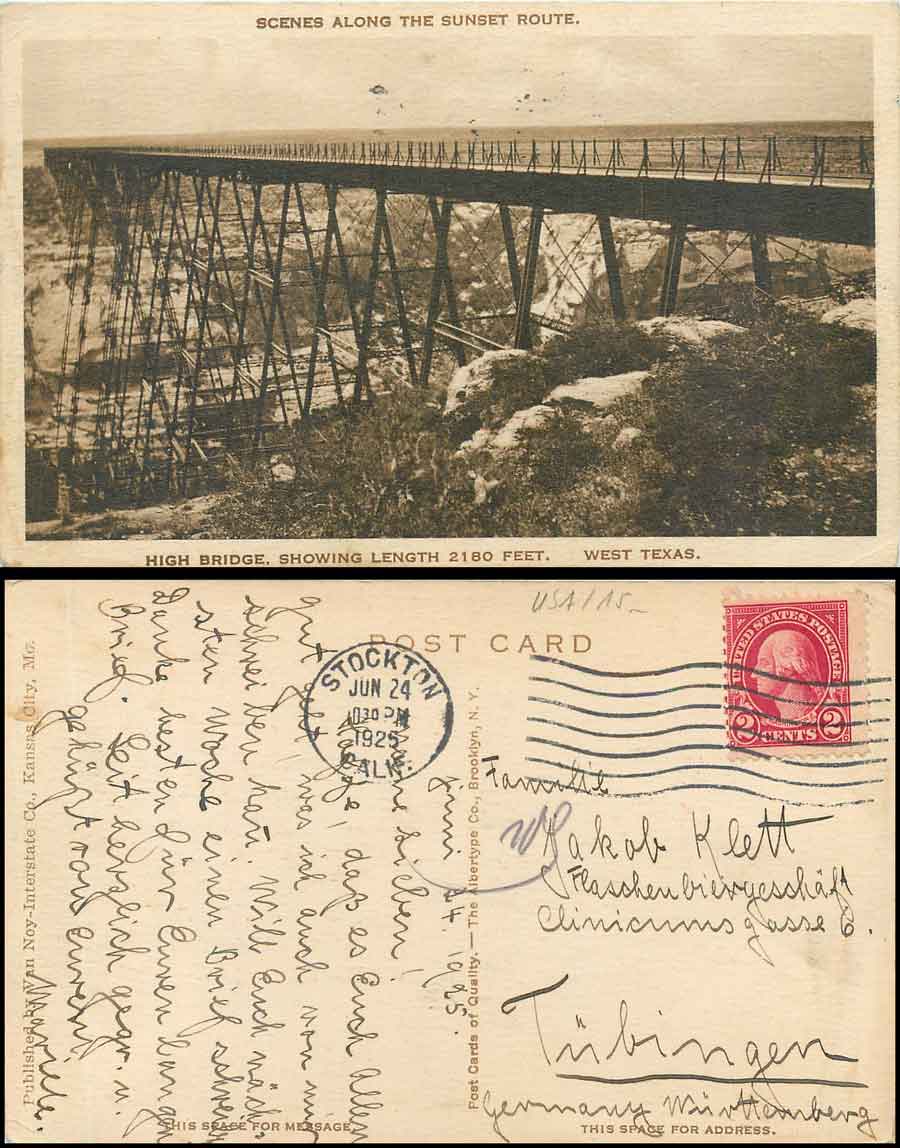 SCENES ALONG THE SUNSET ROUTE.
HIGH BRIDGE, SHOWING LENGTH 2180 FEET. WEST TEXAS.
USA/15_
POST CARD
UNITED STATES POSTAGE
2 CENTS 2
STOCKTON
JUN 24
1030 PM
1925
CALIF.
Published by Van Noy-Interstate Co., Kansas City, Mo.
Post Cards of Quality. — The Albertype Co., Brooklyn, N. Y.
Juni 24. 1925.
lieben!
daß es Euch allen
gut geht was ich auch von mir
schreiben kann. Will Euch näch-
sten Woche einen Brief schrei
Danke bestens für Euren langen
Brief. Seit herzlich gegr. u.
geküßt von Eurem
Familie
Jakob Klett
Flaschenbiergeschäft
Clinicumsgasse 6.
Tübingen
Germany Württemberg
THIS SPACE FOR MESSAGE.
THIS SPACE FOR ADDRESS.